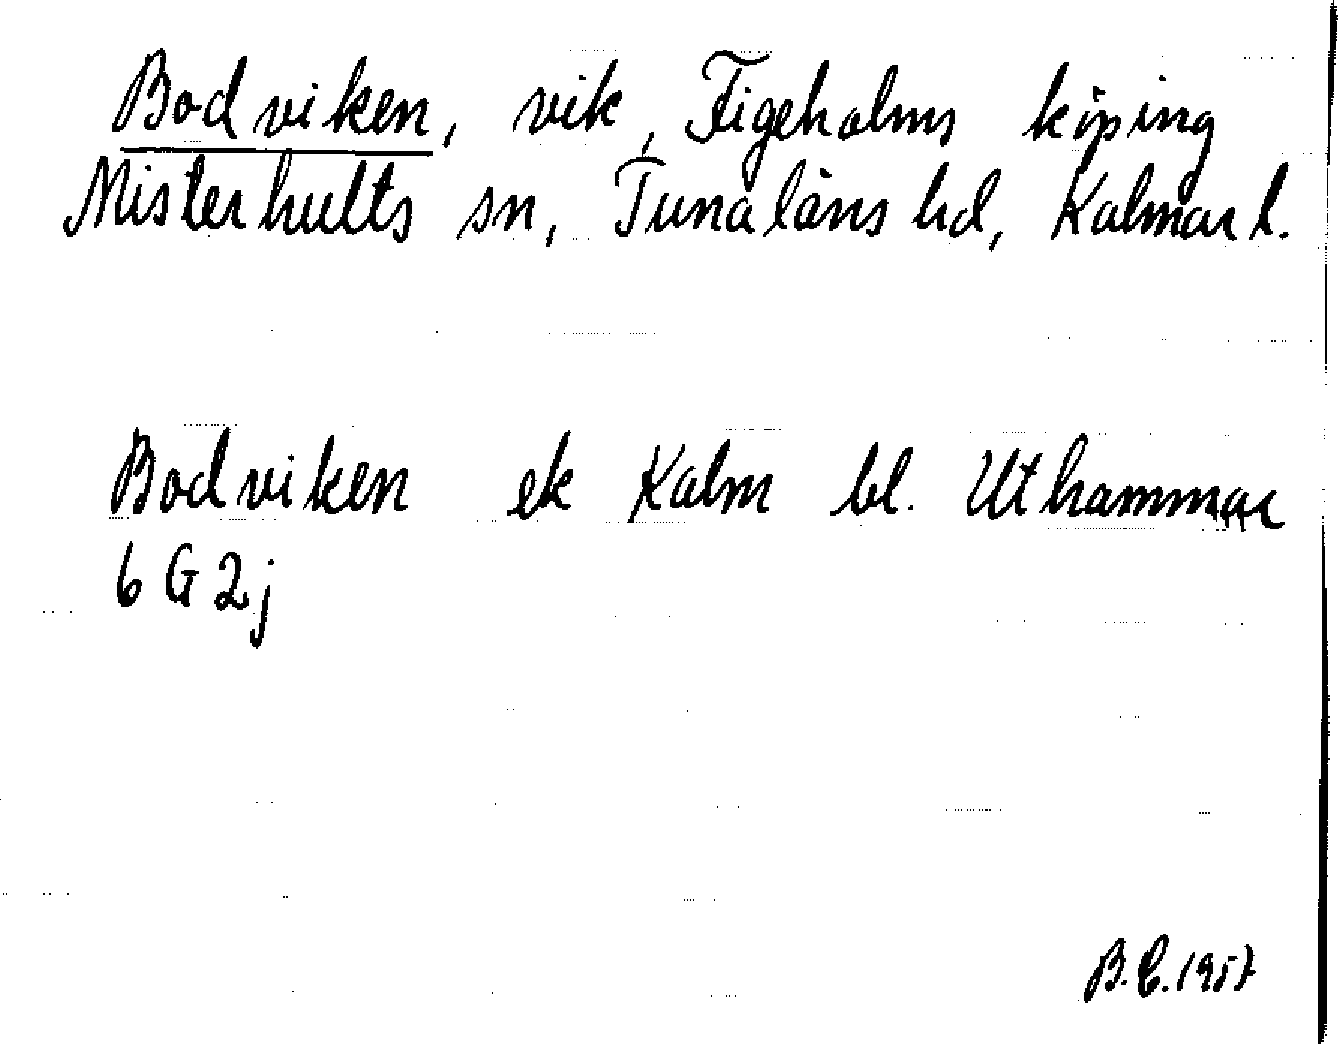 Bodviken, vik, Figeholms köping
Misterhults sn, Tunaläns hd, Kalmar l.
Bodviken ek Kalm bl. Uthammar
6 G 2j
B.E. 1957